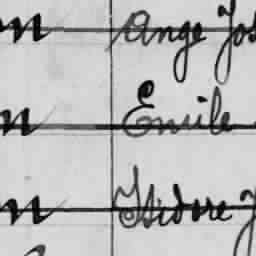 n Ange Jos
n Emile
n Isidore J